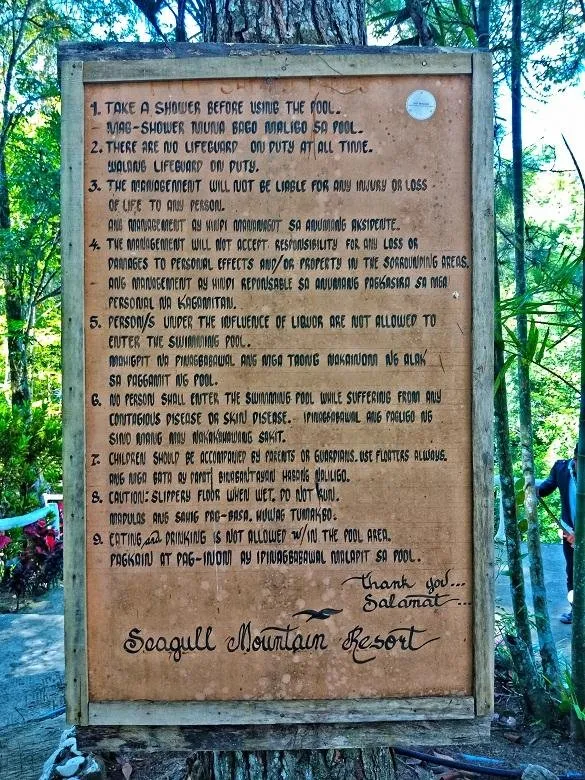 1. TAKE A SHOWER BEFORE USING THE POOL.
- MAG-SHOWER MUNA BAGO MALIGO SA POOL.
2. THERE ARE NO LIFEGUARD ON DUTY AT ALL TIME.
WALANG LIFEGUARD ON DUTY.
3. THE MANAGEMENT WILL NOT BE LIABLE FOR ANY INJURY OR LOSS
OF LIFE TO ANY PERSON.
ANG MANAGEMENT AY HINDI MANANAGOT SA ANUMANG AKSIDENTE.
4. THE MANAGEMENT WILL NOT ACCEPT RESPONSIBILITY FOR ANY LOSS OR
DAMAGES TO PERSONAL EFFECTS AND/OR PROPERTY IN THE SORROUNDING AREAS.
ANG MANAGEMENT AY HINDI REPONSABLE SA ANUMANG PAGKASIRA SA MGA
PERSONAL NA KAGAMITAN.
5. PERSON/S UNDER THE INFLUENCE OF LIQUOR ARE NOT ALLOWED TO
ENTER THE SWIMMING POOL.
MAHIGPIT NA PINAGBABAWAL ANG MGA TAONG NAKAINOM NG ALAK
SA PAGGAMIT NG POOL.
6. NO PERSON SHALL ENTER THE SWIMMING POOL WHILE SUFFERING FROM ANY
CONTAGIOUS DISEASE OR SKIN DISEASE. IPINAGBABAWAL ANG PAGLIGO NG
SINO MANG MAY NAKAKAHAWANG SAKIT.
7. CHILDREN SHOULD BE ACCOMPANIED BY PARENTS OR GUARDIANS. USE FLOATERS ALWAYS.
ANG MGA BATA AY DAPAT BINABANTAYAN HABANG NALILIGO.
8. CAUTION: SLIPPERY FLOOR WHEN WET. DO NOT RUN.
MADULAS ANG SAHIG PAG-BASA. HUWAG TUMAKBO.
9. EATING and DRINKING IS NOT ALLOWED W/IN THE POOL AREA.
PAGKAIN AT PAG-INOM AY IPINAGBABAWAL MALAPIT SA POOL.
Thank you...
Salamat...
Seagull Mountain Resort